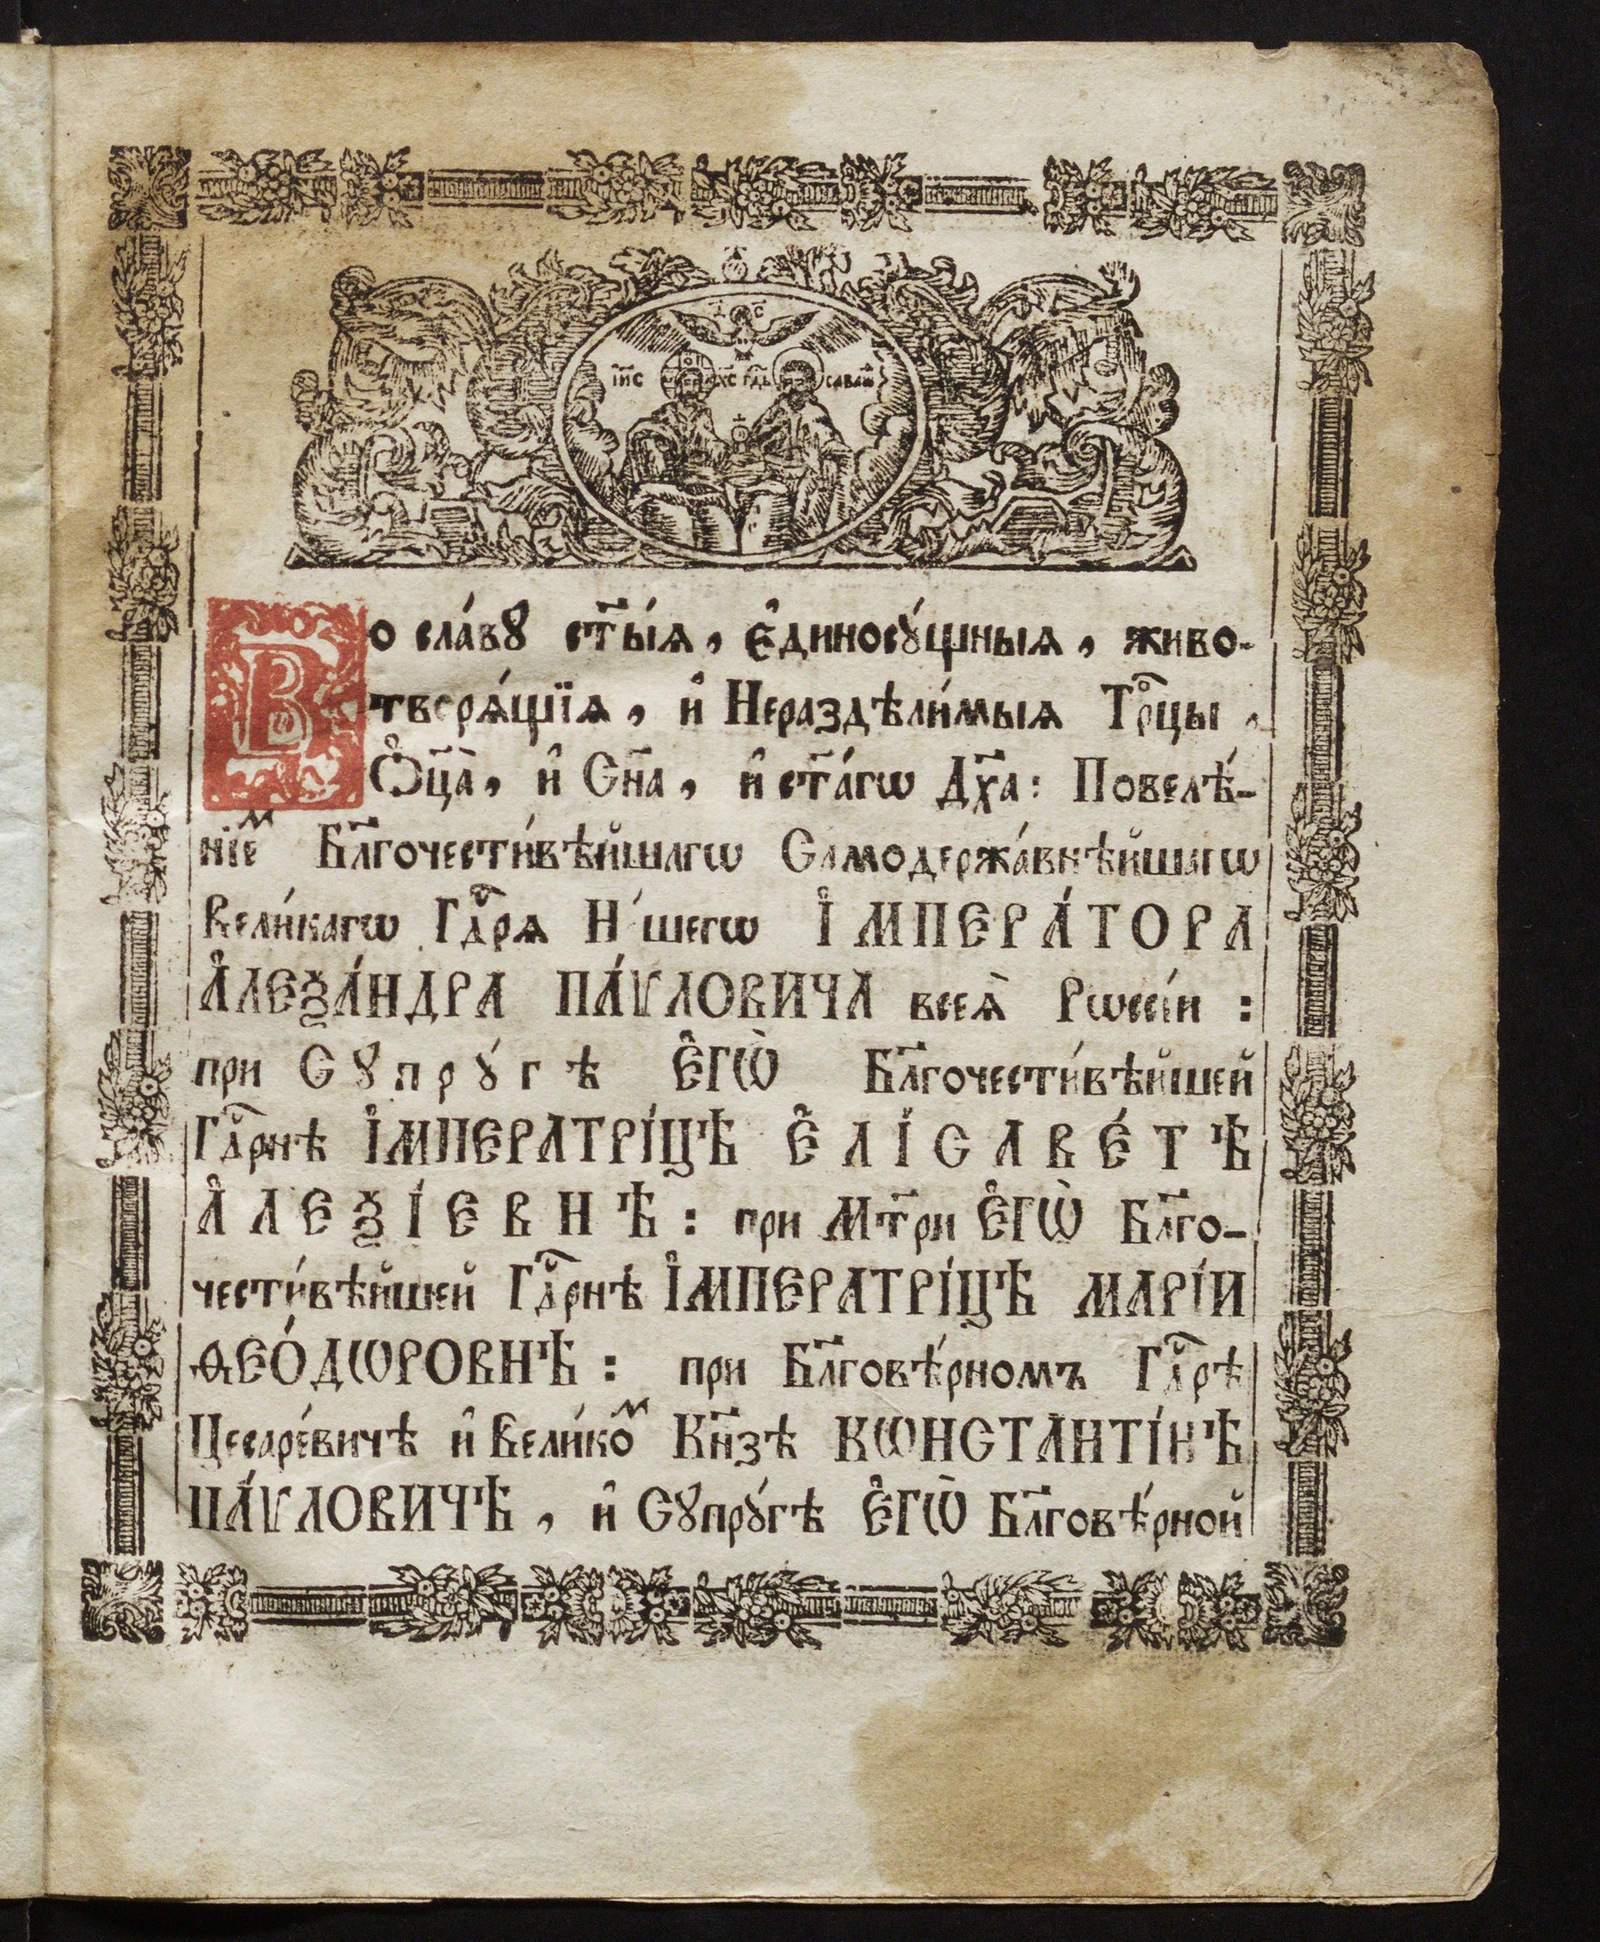 І҃С
І҃ИС ХС ГДЬ САВАѠ
Во сла́вꙋ ст҃ы́ѧ, є҆диносꙋ́щныѧ, живо-
творѧ́щїѧ, и҆ Нераздѣли́мыѧ Трⷪ҇цы,
Ѻ҆ц҃а̀, и҆ Сн҃а, и҆ ст҃а́гѡ Дх҃а: Повелѣ́-
нїеⷨ Бл҃гочести́вѣйшагѡ Самодержа́внѣйшагѡ
Вели́кагѡ Гдⷭ҇рѧ Н́шегѡ І҆МПЕРА́ТОРА
А҆ЛЕѮА́НДРА ПА́ѴЛОВИЧА всеѧ̀ Рѡссі́и:
при Сꙋпрꙋ́гѣ Є҆ГѠ̀ Бл҃гочести́вѣйшей
Гдⷭ҇рнѣ І҆МПЕРАТРІ́ЦѢ Є҆ЛІСАВЕ́ТѢ
А҆ЛЕѮІ́ЕВНѢ: при Мт҃ри Є҆ГѠ̀ Бл҃го-
чести́вѣйшей Гдⷭ҇рнѣ І҆МПЕРАТРІ́ЦѢ МАРІ́И
ѲЕО́ДѠРОВНѢ: при Бл҃говѣ́рномъ Гдⷭ҇рѣ
Цесаре́вичѣ и҆ Вели́коⷨ Кн҃зѣ КѠНСТАНТІ́НѢ
ПА́ѴЛОВИЧѢ, и҆ Сꙋпрꙋ́гѣ Є҆ГѠ̀ Бл҃говѣ́рной